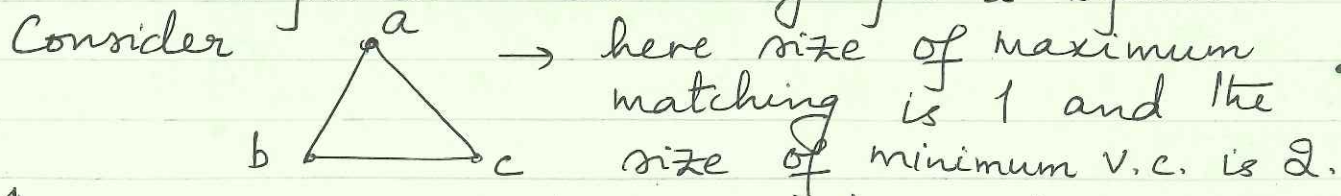 Consider a → here size of maximum
matching is 1 and the
b c size of minimum v.c. is 2.